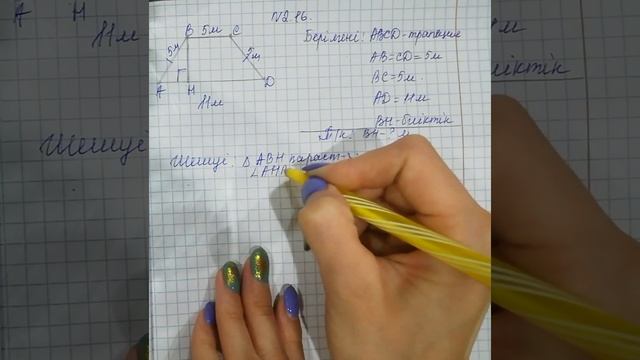 №216.
B 5м C
5м
5м
A H D
11м
Берілгені: ABCD-трапеция
AB=CD=5м
BC=5м.
AD=11м
BH-биіктік
Т/к: BH-? м
Шешуі: △ABH қараст-з
∠AHB